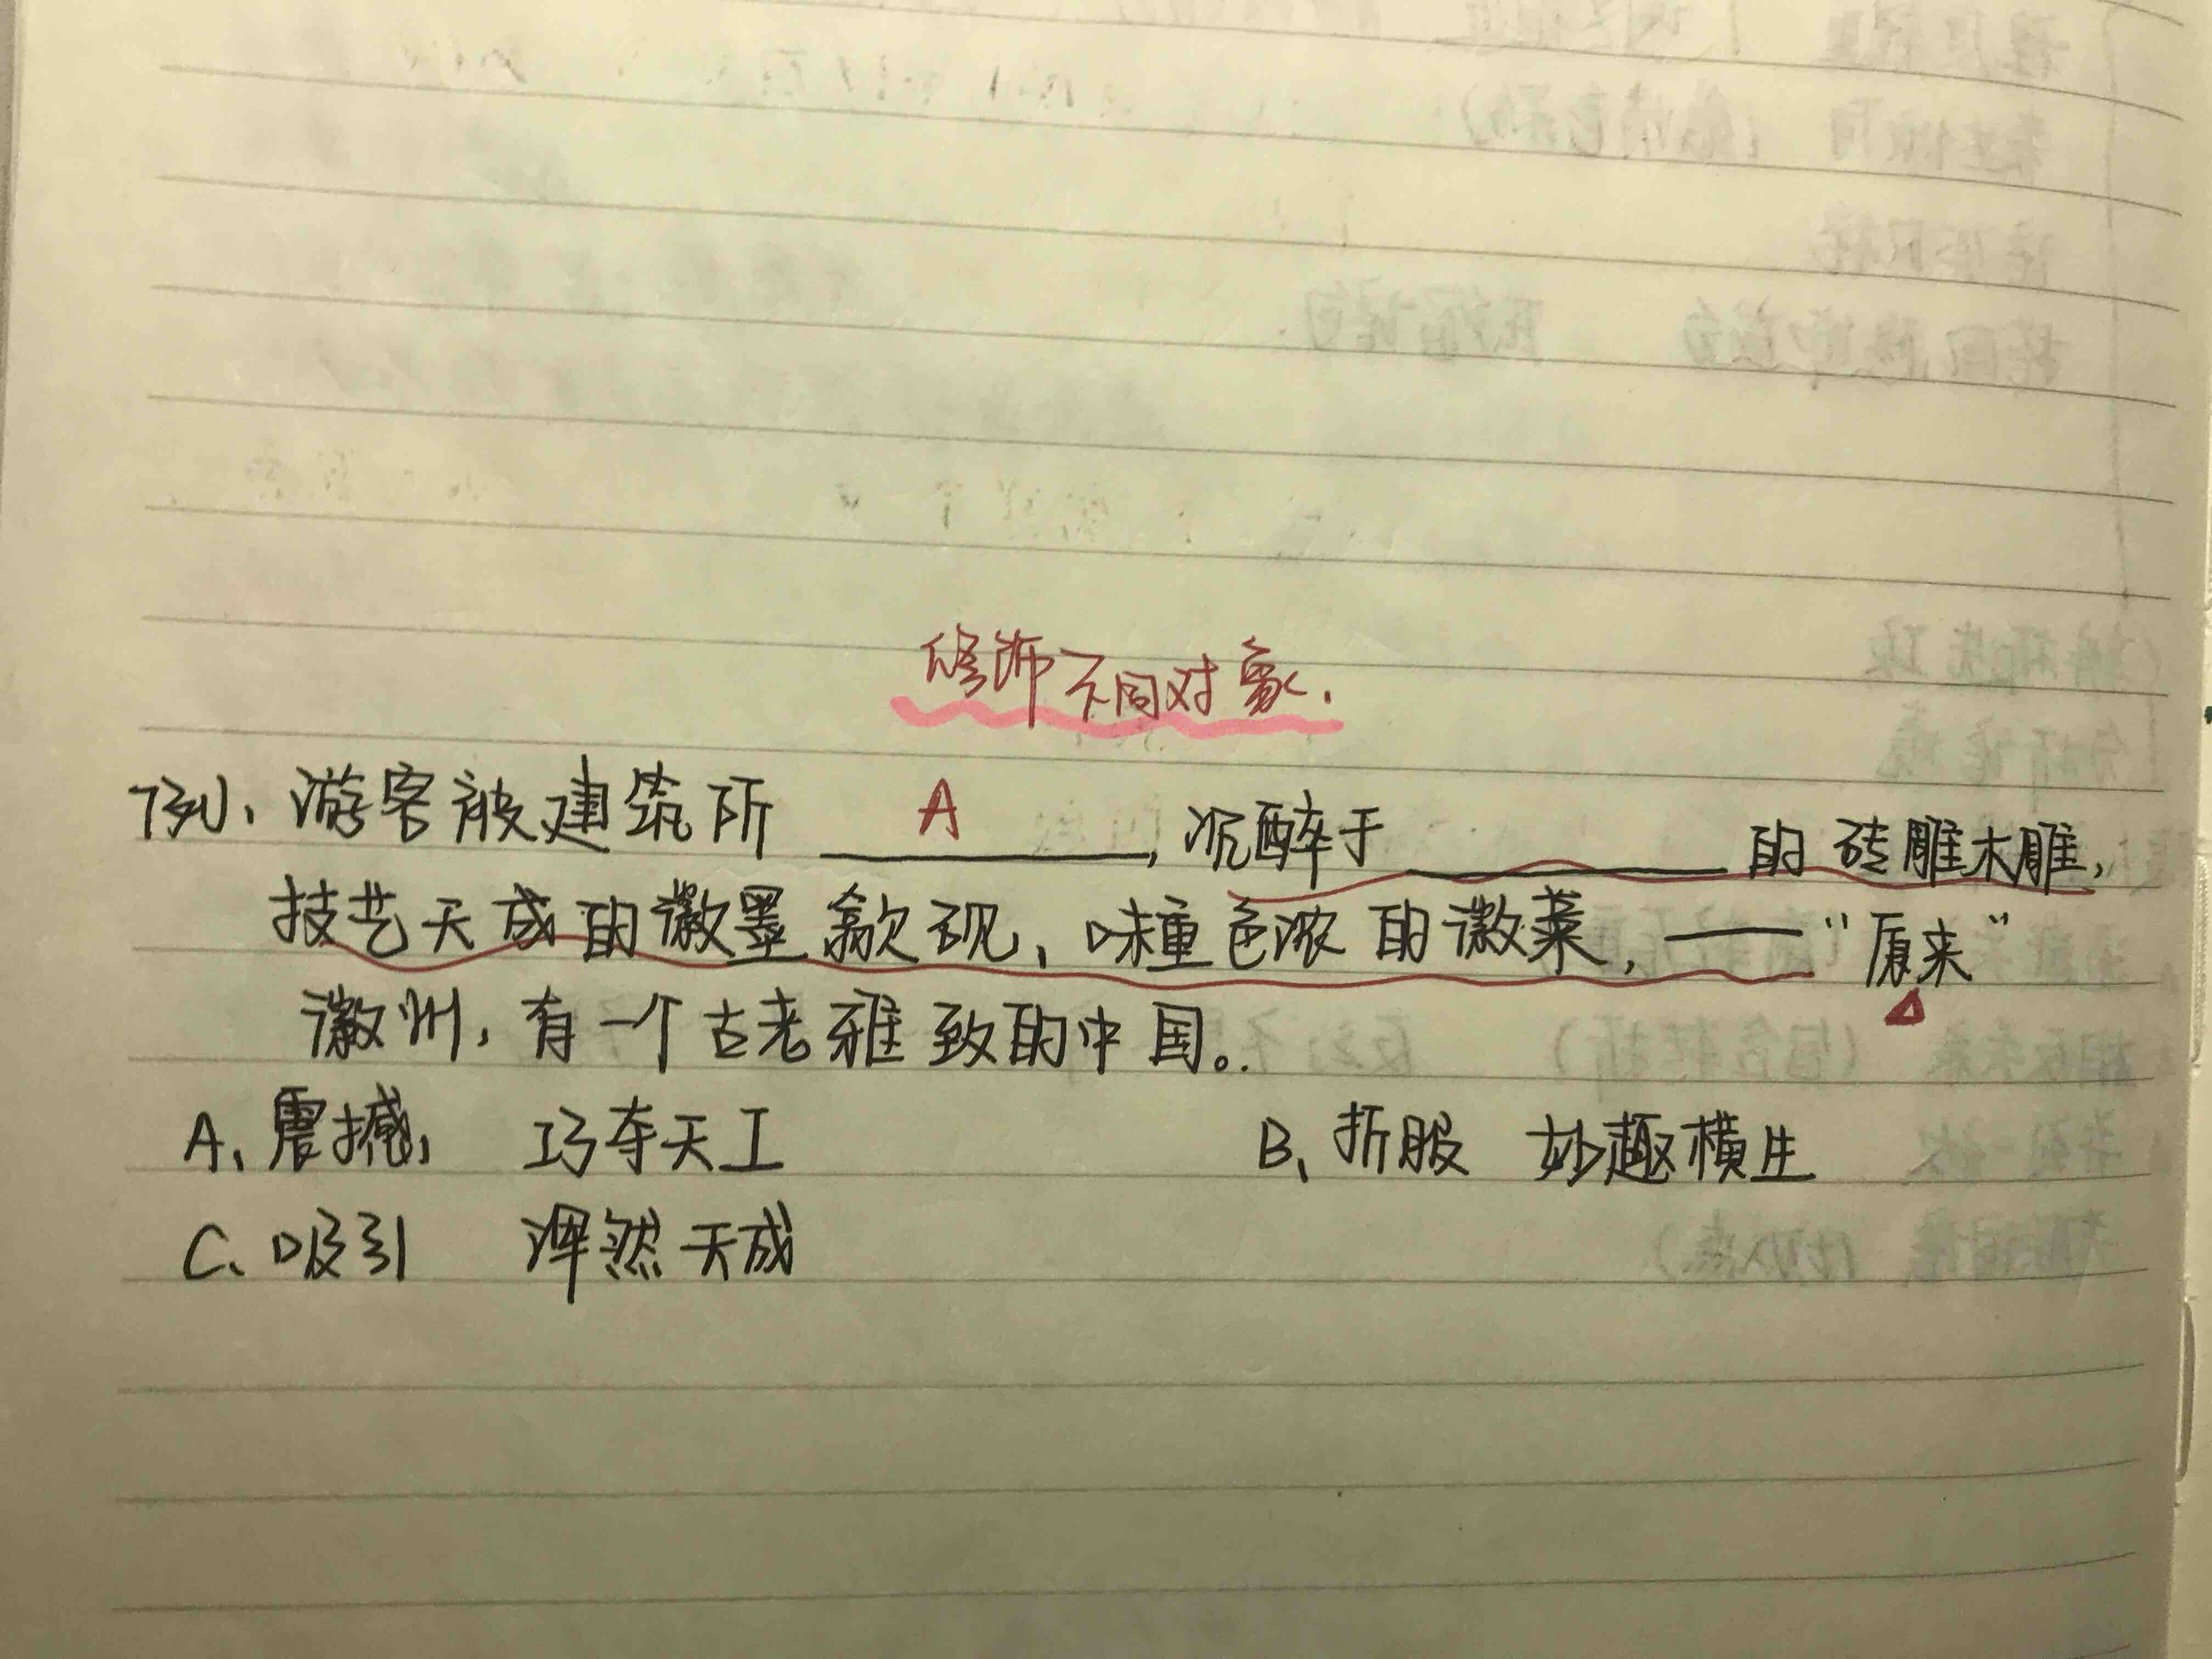 修饰不同对象.
例、游客被建筑所 A ,沉醉于 的砖雕木雕,
技艺天成的徽墨歙砚、味重色浓的徽菜,——"原来"
徽州,有一个古老雅致的中国。
A、震撼, 巧夺天工 B、折服 妙趣横生
C、吸引 浑然天成